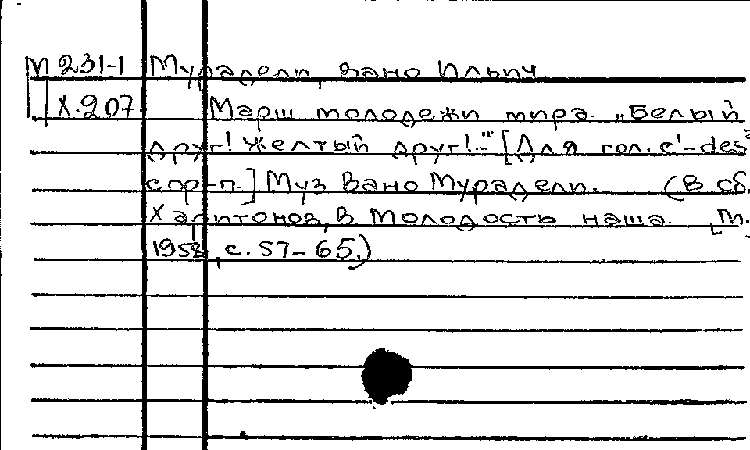 М 231-1 Мурадели, Вано Ильич
Х-207 Марш молодежи мира. „Белый
друг! Желтый друг!.." [Для гол. c'-des
спр-п.] Муз Вано Мурадели. (В сб.
Харитонов, В Молодость наша. [М.
1958, с. 57-65.)